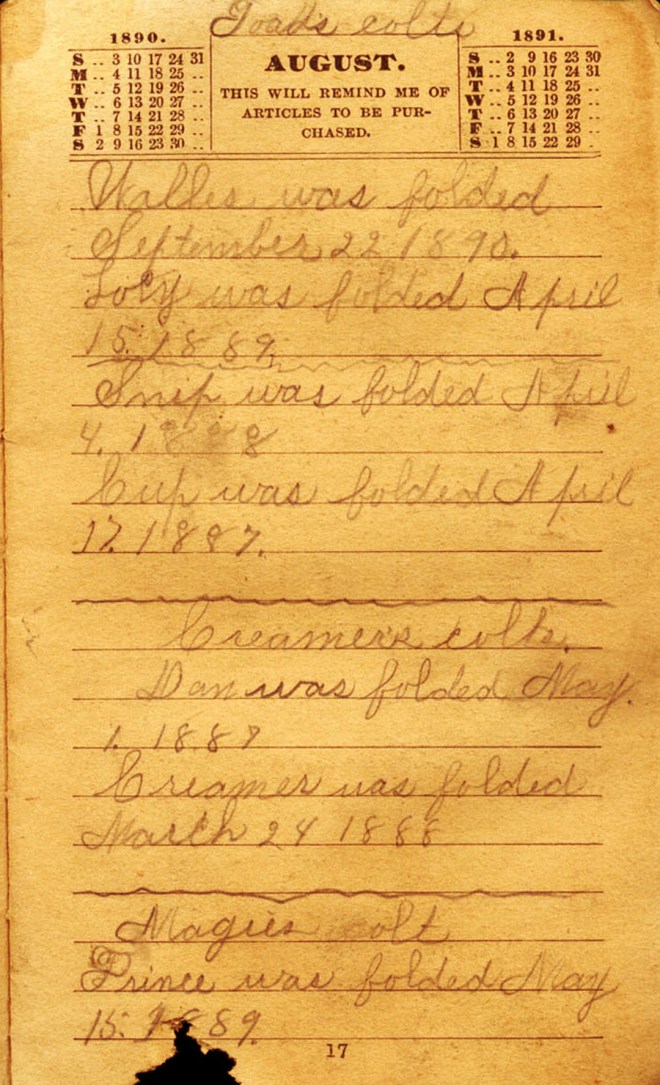 Toads colts
1890.
S .. 3 10 17 24 31
M .. 4 11 18 25 ..
T .. 5 12 19 26 ..
W .. 6 13 20 27 ..
T .. 7 14 21 28 ..
F 1 8 15 22 29 ..
S 2 9 16 23 30 ..
AUGUST.
THIS WILL REMIND ME OF
ARTICLES TO BE PUR-
CHASED.
1891.
S .. 2 9 16 23 30
M .. 3 10 17 24 31
T .. 4 11 18 25 ..
W .. 5 12 19 26 ..
T .. 6 13 20 27 ..
F .. 7 14 21 28 ..
S 1 8 15 22 29 .
was folded
September 22 1890.
was folded April
15. 1889.
Snip was folded April
4. 1888
Cup was folded April
17. 1887.
Creamers colts.
Dan was folded May.
1. 1887
Creamer was folded
March 24 1888
Magies colt
Prince was folded May
15. 1889.
17